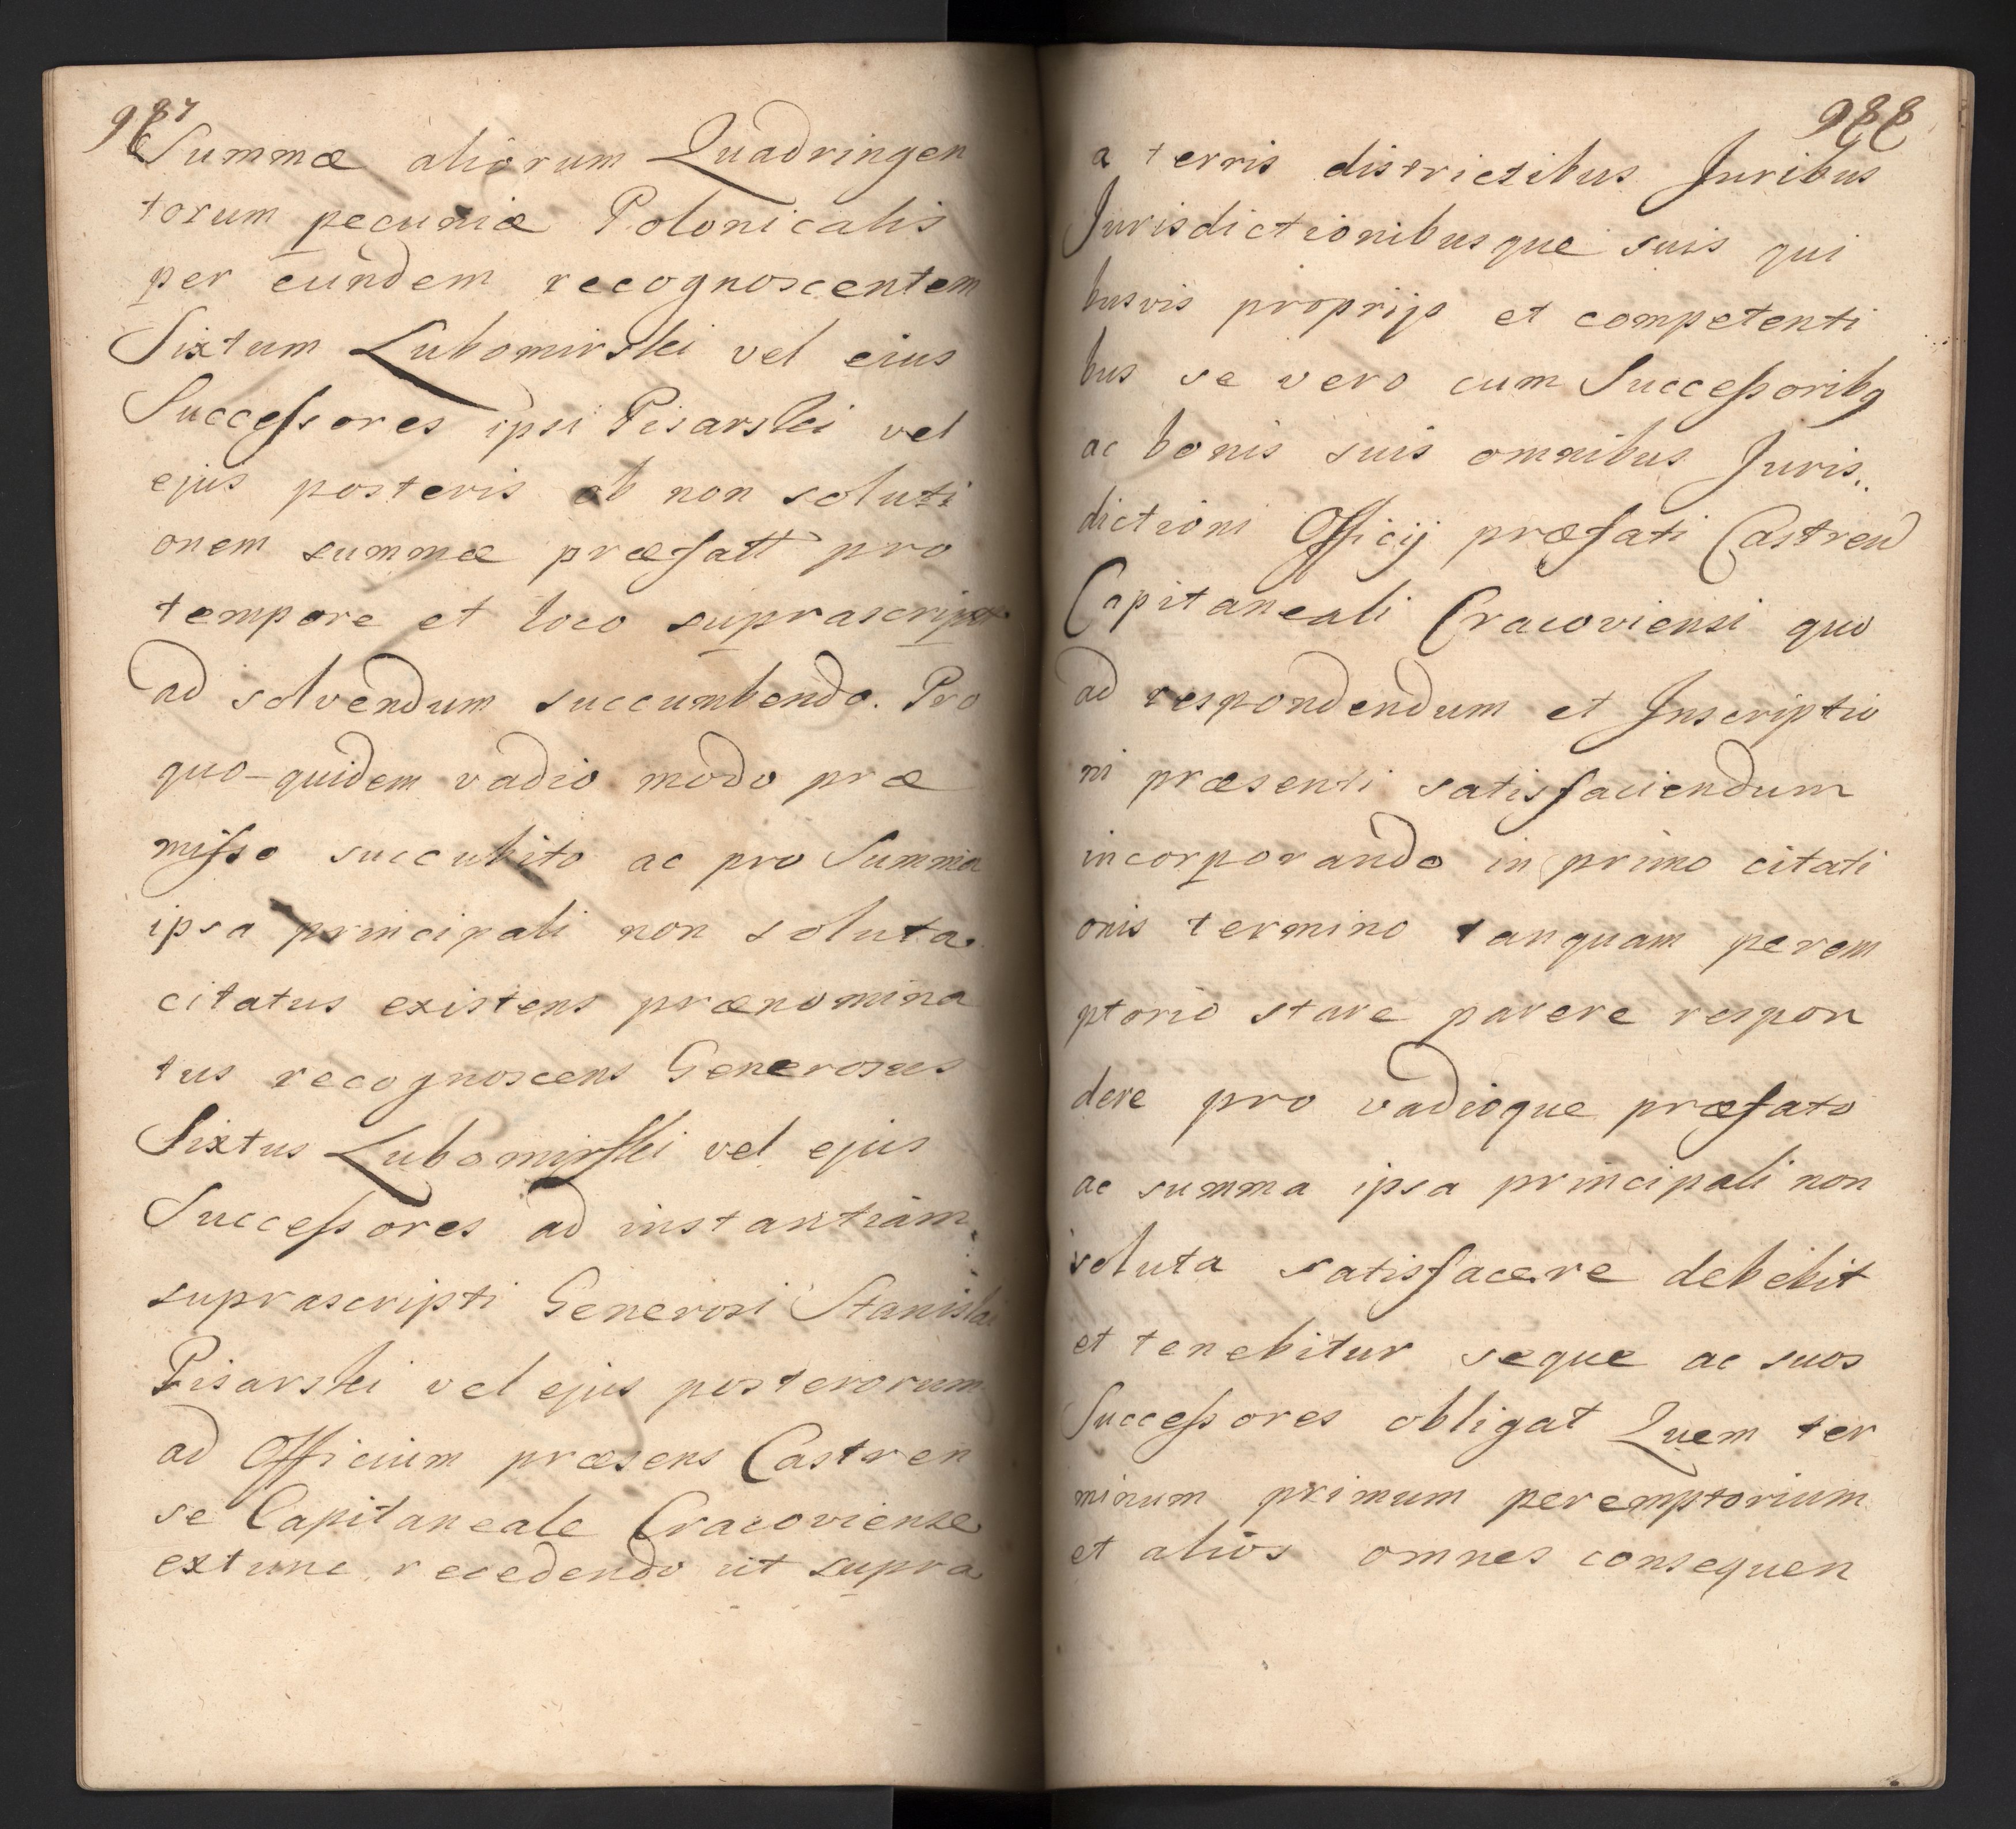 987
Summæ aliorum Quadringen
torum pecuniæ Polonicalis
per eundem recognoscentem
Sixtum Lubomirski vel eius
Successores ipsi Pisarski vel
ejus posteris ob non soluti
onem summæ præfatt pro
tempore et loco suprascript
ad solvendum succumbendo. Pro
quo-quidem vadio modo præ
misso succubito ac pro Summa
ipsa principali non soluta
citatus existens prænomina
tus recognoscens Generosus
Sixtus Lubomirski vel ejus
Successores ad instantiam
suprascripti Generosi Stanislai
Pisarski vel ejus posterorum
ad Officium præsens Castren
se Capitaneale Cracoviense
extunc recedendo ut supra
988
a terris districtibus Juribus
Jurisdictionibusque suis qui
busvis proprijs et competenti
bus se vero cum Successoribq
ac bonis suis omnibus Juris..
dictioni Officij præfati Castren
Capitaneali Cracoviensi quo
ad respondendum et Inscriptio
ni præsenti satisfaciendum
incorporando in primo citati
onis termino tanquam perem
ptorio stare parere respon
dere pro vadioque præfato
ac summa ipsa principali non
soluta satisfacere debebit
et tenebitur seque ac suos
Successores obligat Quem ter
minum primum peremptorium
et alios omnes consequen